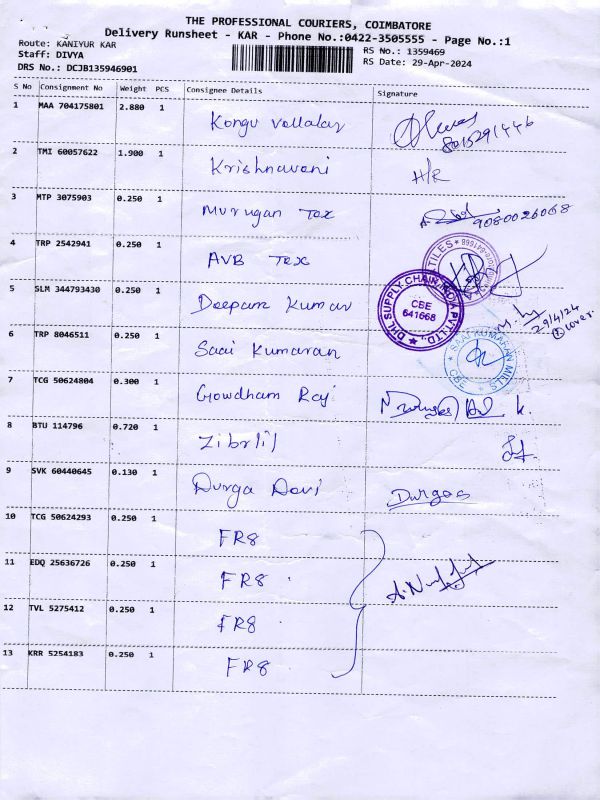 THE PROFESSIONAL COURIERS, COIMBATORE
Delivery Runsheet - KAR - Phone No.:0422-3505555 - Page No.:1
Route: KANIYUR KAR
RS No.: 1359469
Staff: DIVYA
RS Date: 29-Apr-2024
DRS No.: DCJB135946901
S No Consignment No Weight PCS Consignee Details Signature
1 MAA 704175801 2.880 1 Kongu vellalar 8015291446
2 TMI 60057622 1.900 1 Krishnavani H/R
3 MTP 3075903 0.250 1 Murugan Tex 9080026068
4 TRP 2542941 0.250 1 AVB Tex
5 SLM 344793430 0.250 1 Deepam Kumar
DHL SUPPLY CHAIN INDIA PVT. LTD.,
CBE
641668
29/4/24
① cover.
6 TRP 8046511 0.250 1 Saai Kumaran
SAAI KUMARAN MILLS
CBE
7 TCG 50624804 0.300 1 Gowdham Raj
8 BTU 114796 0.720 1 Zibrlil
9 SVK 60440645 0.130 1 Durga Davi Durgas
10 TCG 50624293 0.250 1 FR8
11 EDQ 25636726 0.250 1 FR8
12 TVL 5275412 0.250 1 FR8
13 KRR 5254183 0.250 1 FR8